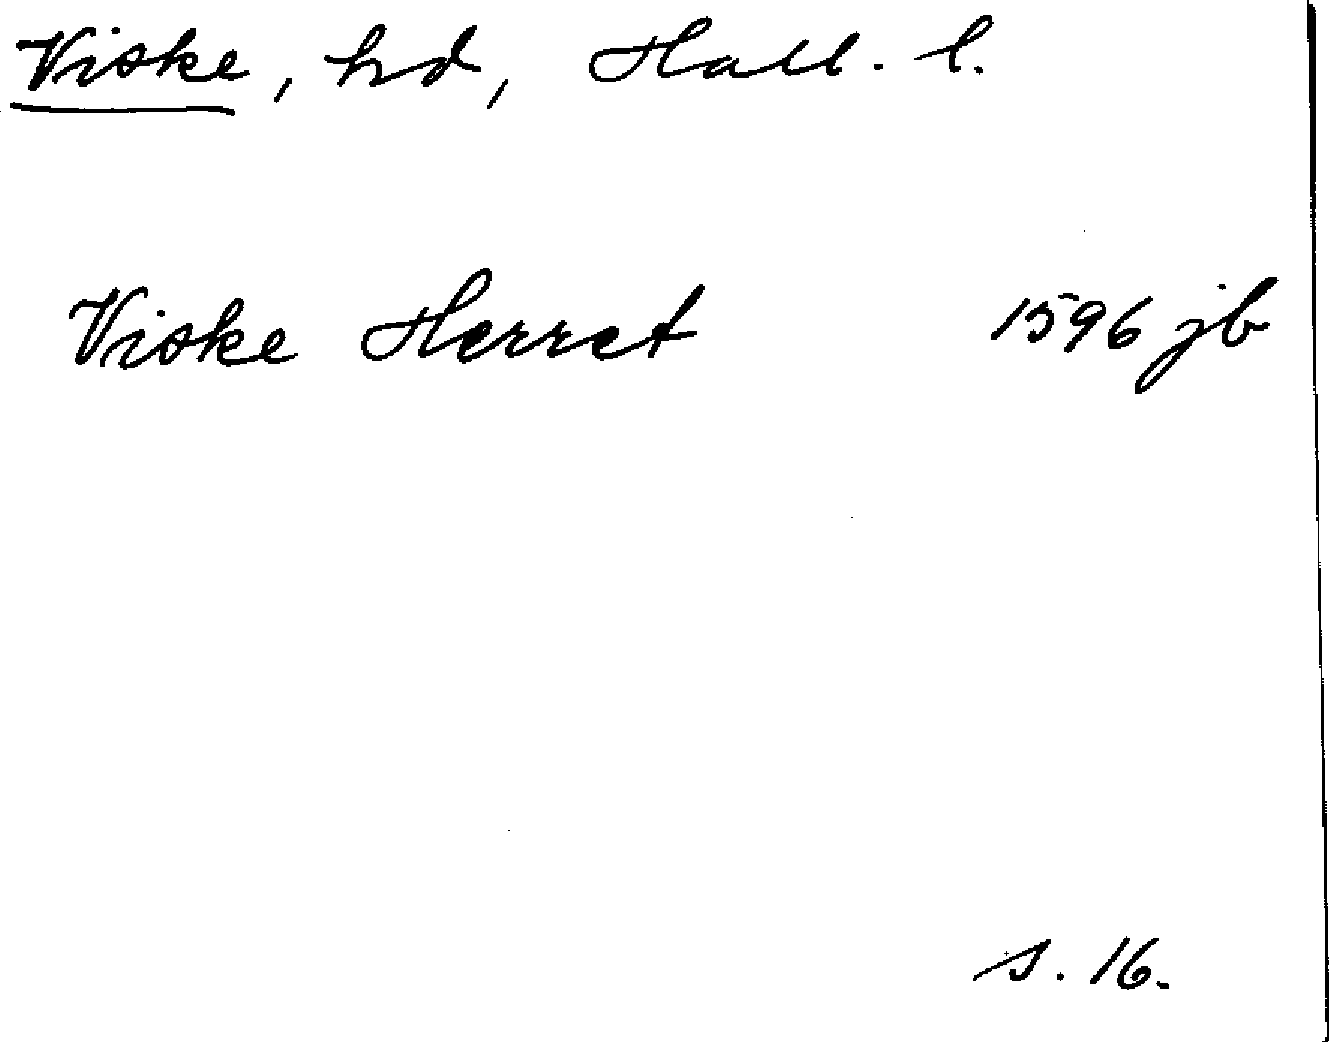 Viske, hd, Hall. l.
Viske Herret 1596 jb
s. 16.